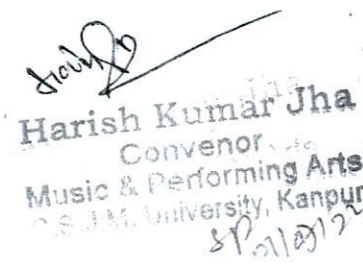 Harish Kumar Jha
Convenor
Music & Performing Arts
C.S.J.M. University, Kanpur